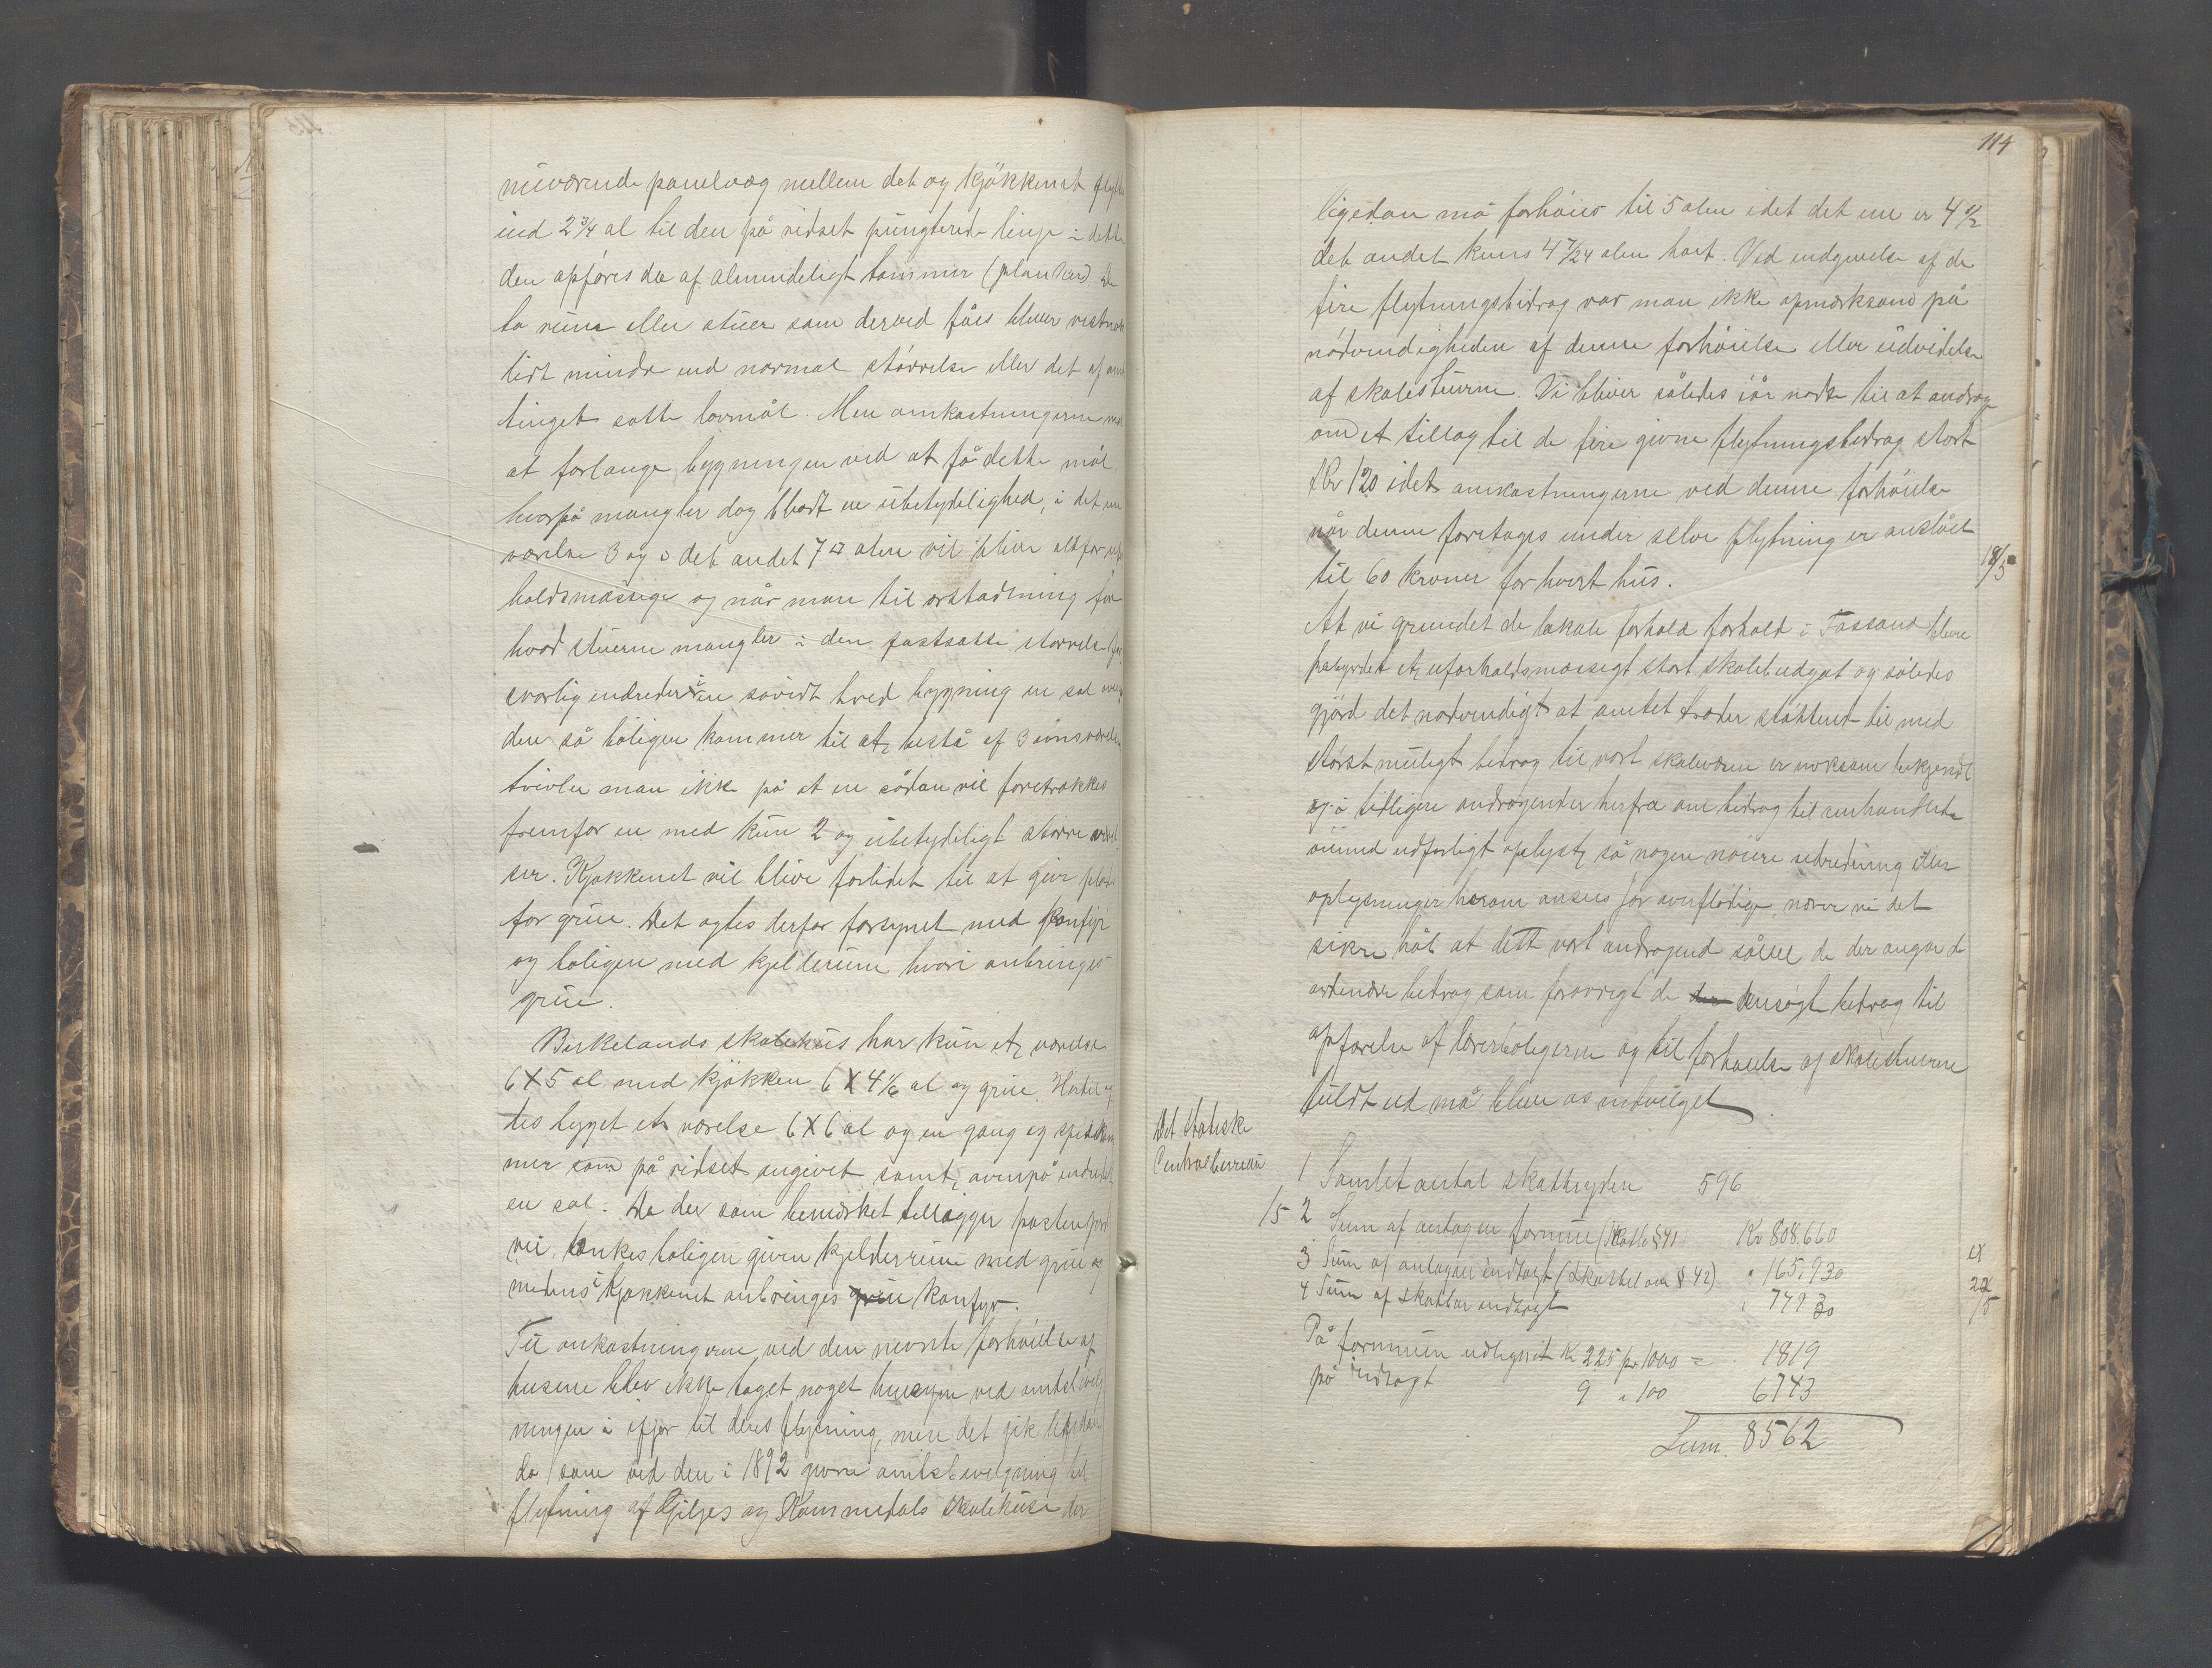 nuværende panelvæg mellem det og kjökkenet flyttes
ind 2 3/4 al til den på ridset pungterede linje i dette
den opføres da af almindeligt tømmer (planker) De
to rum eller stuer som derved fåes bliver vistnok
lidt mindre end normal störrelse eller det af amts
tinget satte lovmål. Men omkostningerne med
at forlænge bygningen ved at få dette mål
hvorpå mangler dog blodt en ubetydelighed, i det ene
værelse 3 og i det andet 7 □ alen vil blive altfor ufor
holdsmæssige og når man til erstadtning for
hvad stuerne mangler i den fastsatte störrelse for
svarlig indreder i en såvidt bred bygning en sal oven
den så boligen kommer til at bestå af 3 værelser
tvivler man ikke på at en sådan vil foretrækkes
fremfor en med kun 2 og ubetydeligt större værel
ser. Kjøkkenet vil blive forlidet til at give plads
for grue. Det agtes derfor forsynet med komfyr
og boligen med kjelderrum hvori anbringes
grue.
Birkelands skolehus har kun et værelse
6 X 5 al med kjökken 6 X 4 1/6 al og grue. Hertil ag
tes bygget et værelse 6 X 6 al og en gang og spiskam
mer som på ridset angivet samt ovenpå indredet
en sal. Da der som bemærket tillægger posten ford
vei, tænkes boligen given kjelderrum med grue og
medens i kjøkkenet anbringes komfyr.
Til omkostningerne ved den nevnte forhöielse af
husene blev ikke taget noget hensyn ved amtsbevilg
ningen i ifjor til deres flytning, men det gik ligedan
da som ved den i 1892 givne amtsbevilgning til
flytning af Giljes og Kommedals skolehuse der
114
ligedan må forhöies til 5 alen idet det ene er 4 1/2
det andet kuns 4 7/24 alen höit. Ved indgivelse af de
fire flytningsbidrag var man ikke opmærksom på
nödvendigheden af denne forhöielse eller udvidelse
af skolestuerne. Vi bliver således iår nødte til at andrage
om et tillæg til de fire givne flytningsbidrag stort
Kr 120 idet omkostningerne ved denne forhöielse
når denne foretages under selve flytning er anslået
til 60 kroner for hvert hus.
18/5
At vi grundet de lokale forhold forhold i Fossand bleve
påbyrdet et uforholdsmæssigt stort skolebudget og således
gjörd det nødvendigt at amtet træder støttende til med
størst muligt bidrag til vort skolevæsen er noksom bekjendt
og i tidligere andragender herfra om bidrag til omhandlede
öiemed udförligt oplyst, så nogen nöiere udredning eller
oplysninger herom ansees for overflödige, nærer vi det
sikre håb at dette vort andragende såvel de der angår de
ordinære bidrag som forövrigt de ansögte bidrag til
opførelse af lærerboligerne og til forhöielse af skolestuerne
fuldt ud må blive os indvilget
Det statiske
Centralbureau
1 Samlet antal skatteydere 596
15 2 Sum af antagen formue (Skattel § 41) Kr 808.660
3 Sum af antagen indtægt (Skattelovn § 42) " 165.930
4 Sum af skatbar indtægt " 74930
22/5
På formuen udlignet Kr 225 pr 1000 = 1819
på indtægt 9 " 100 6743
Sum. 8562